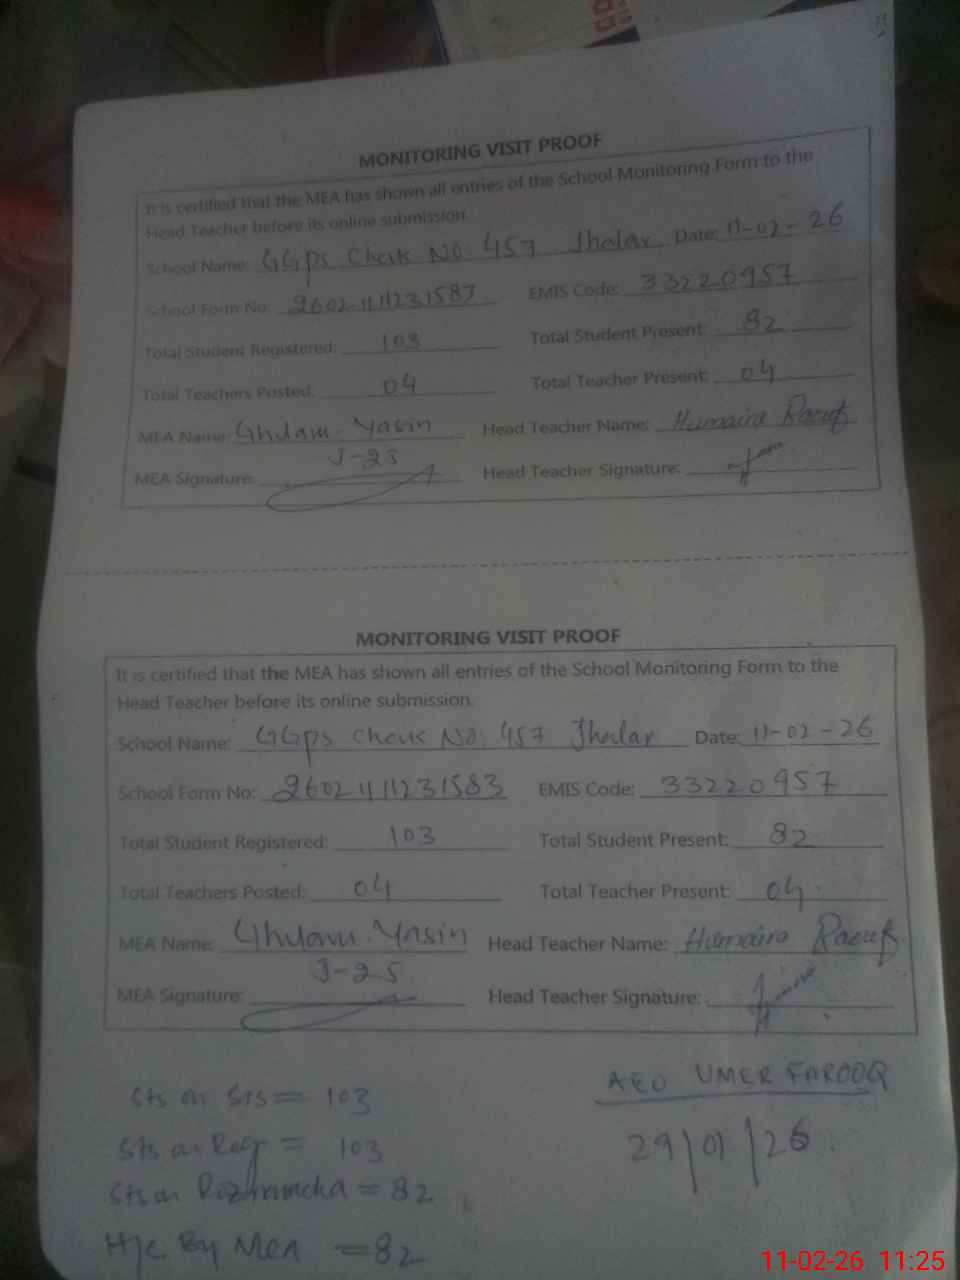 MONITORING VISIT PROOF
It is certified that the MEA has shown all entries of the School Monitoring Form to the
Head Teacher before its online submission.
School Name: GGps Chak No: 457 Jhalar Date: 11-02-26
School Form No: 26021111231583 EMIS Code: 33220957
Total Student Registered: 103 Total Student Present: 82
Total Teachers Posted: 04 Total Teacher Present: 04
MEA Name: Ghulam Yasin Head Teacher Name: Humaira Raouf
MEA Signature: Head Teacher Signature:
MONITORING VISIT PROOF
It is certified that the MEA has shown all entries of the School Monitoring Form to the
Head Teacher before its online submission.
School Name: GGps Chak No: 457 Jhalar Date: 11-02-26
School Form No: 26021111231583 EMIS Code: 33220957
Total Student Registered: 103 Total Student Present: 82
Total Teachers Posted: 04 Total Teacher Present: 04
MEA Name: Ghulam Yasin Head Teacher Name: Humaira Raouf
MEA Signature: Head Teacher Signature:
Sts on STS = 103
Sts on Regr = 103
Sts on Roznamcha = 82
H/C By Mea = 82
AEO UMER FAROOQ
29/01/26
11-02-26 11:25